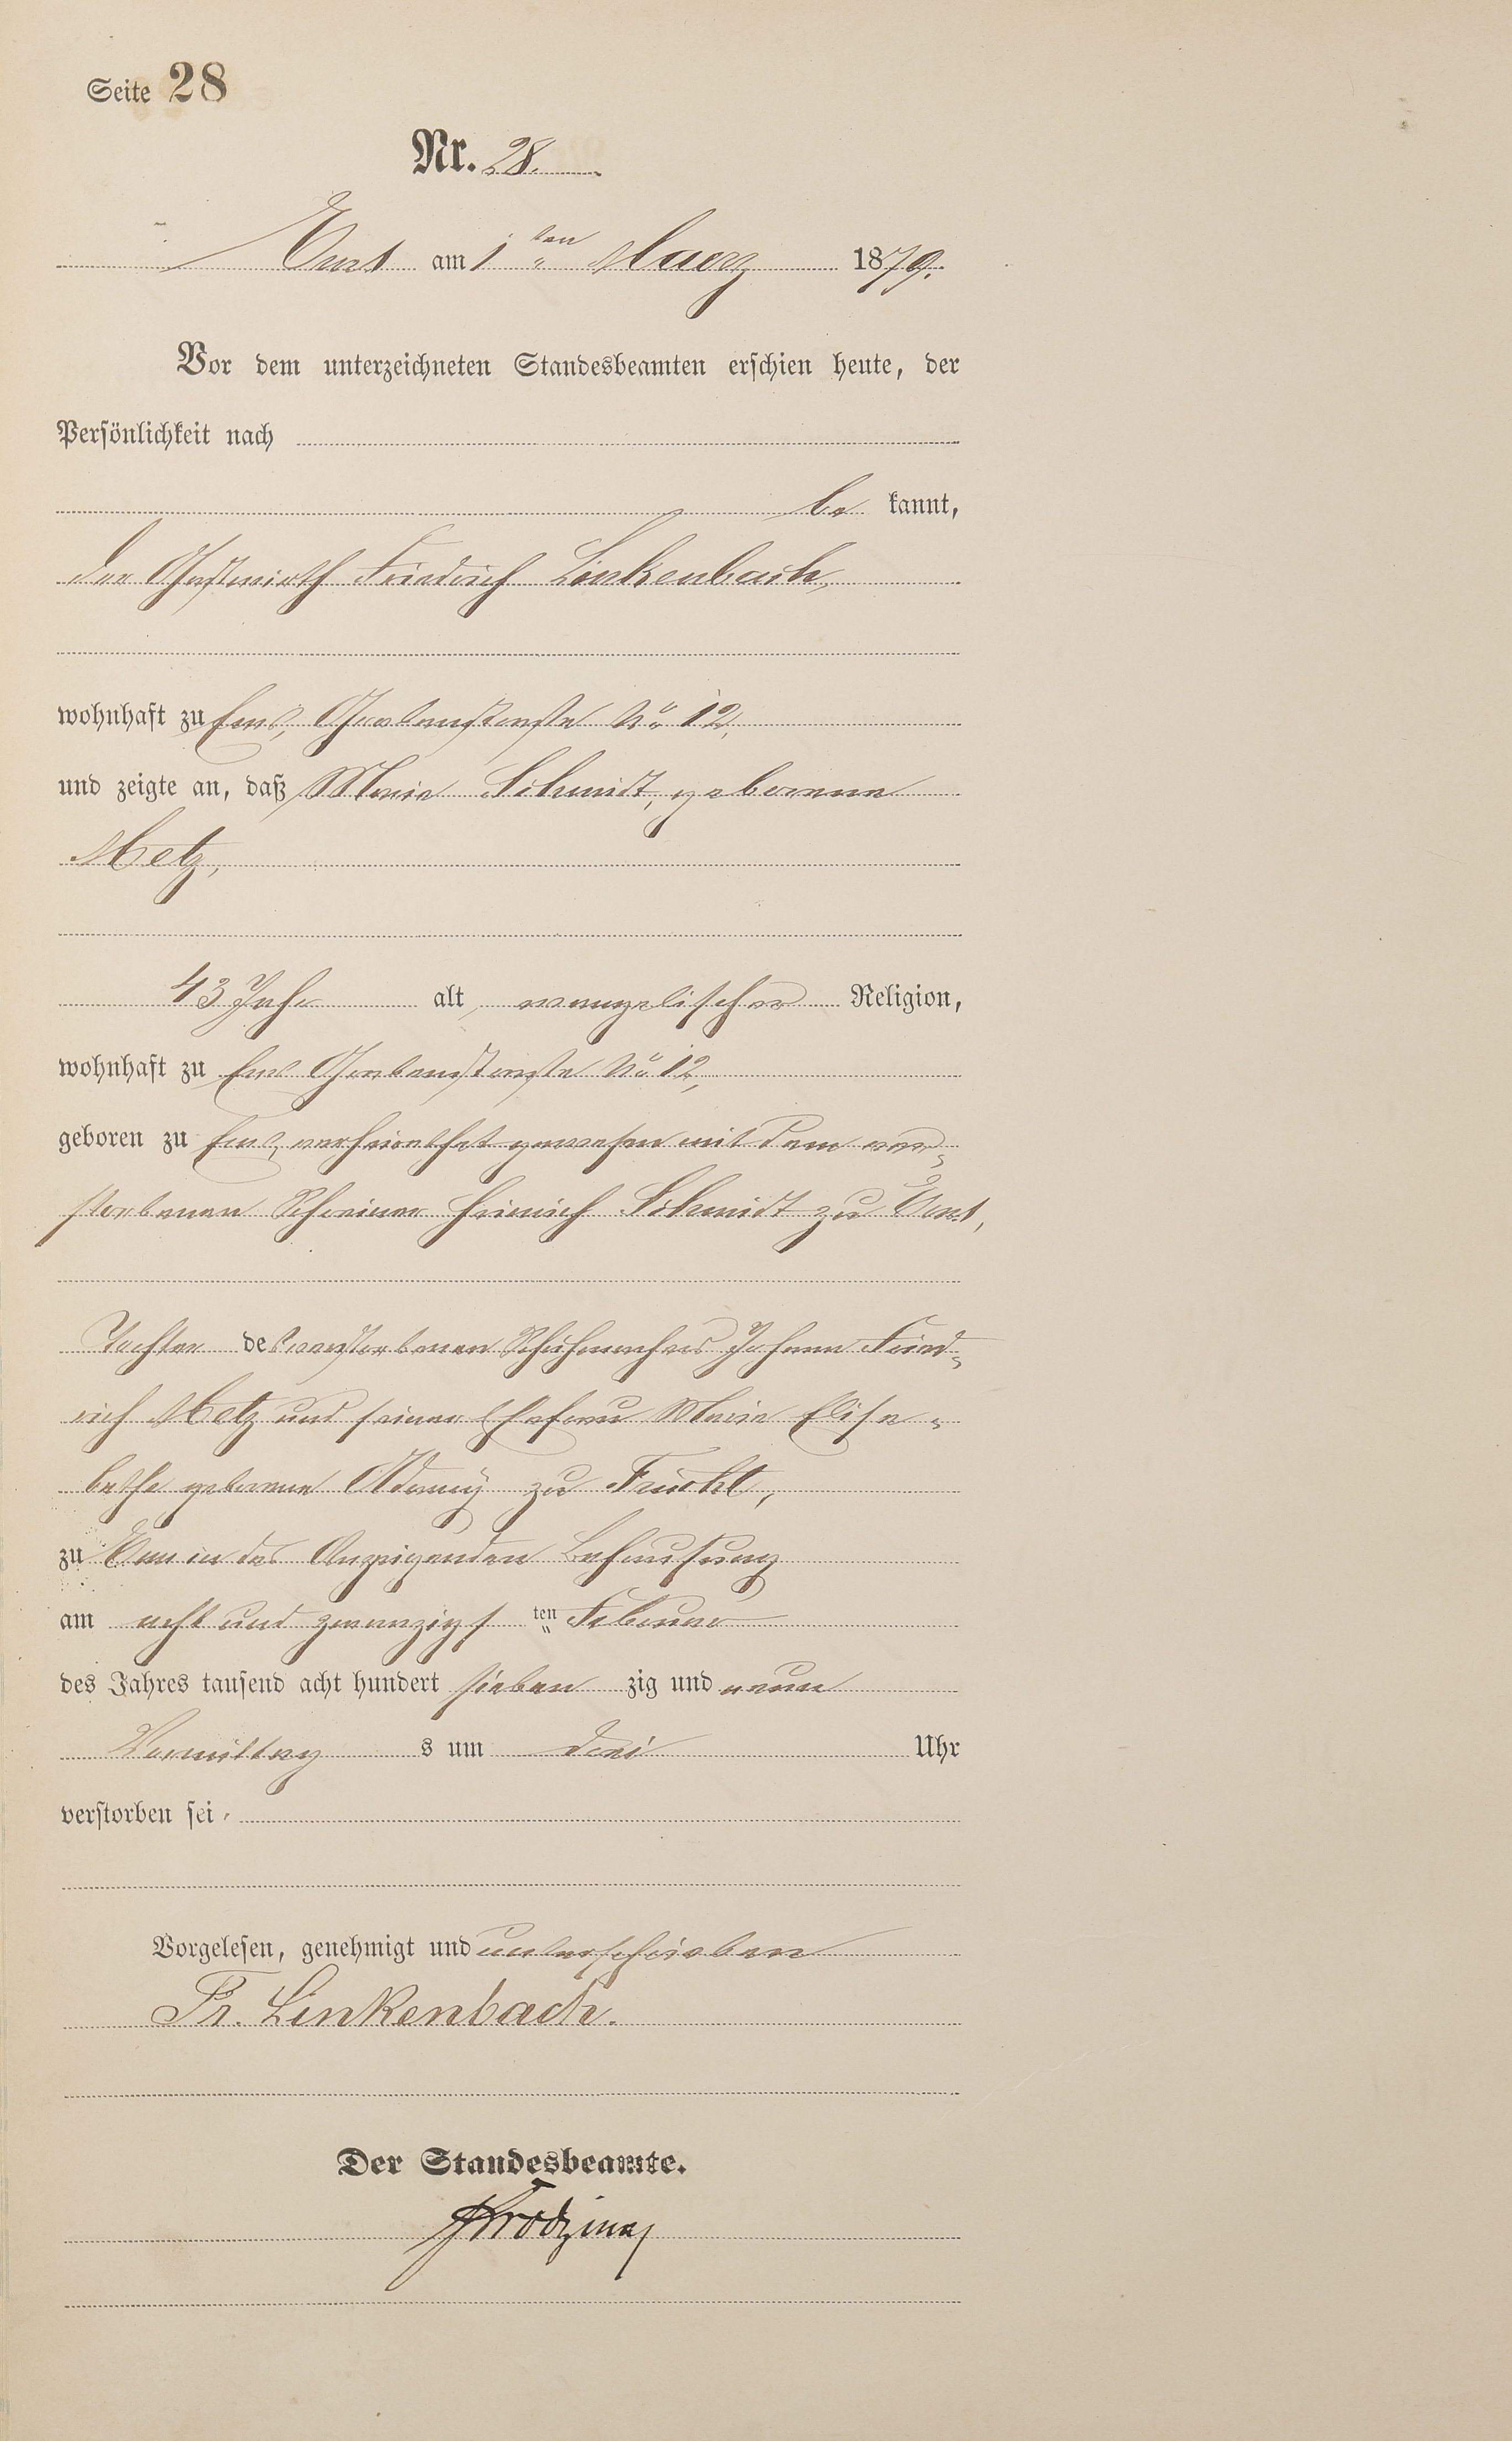 Seite 28
Nr. 28.
Ems am 1ten Maerz 1879.
Vor dem unterzeichneten Standesbeamten erschien heute, der
Persönlichkeit nach
be kannt,
der Gastwirth Friedrich Linkenbach,
wohnhaft zu Ems, Grabenstraße No 12,
und zeigte an, daß Marie Schmidt, geborene
Metz,
43 Jahr alt, evangelischer Religion,
wohnhaft zu Ems Grabenstraße No 12,
geboren zu Ems, verheirathet gewesen mit dem ver-
storbenen Schreiner Heinrich Schmidt zu Ems,
Tochter des verstorbenen Schuhmachers Johann Fried-
rich Metz und seiner Ehefrau Marie Elisa-
betha geborene zu Frücht,
zu Ems in des Anzeigenden Behausung
am acht und zwanzigsten Februar
des Jahres tausend acht hundert sieben zig und neun
Vormittag s um drei Uhr
verstorben sei.
Vorgelesen, genehmigt und unterschrieben
Fr. Linkenbach.
Der Standesbeamte.